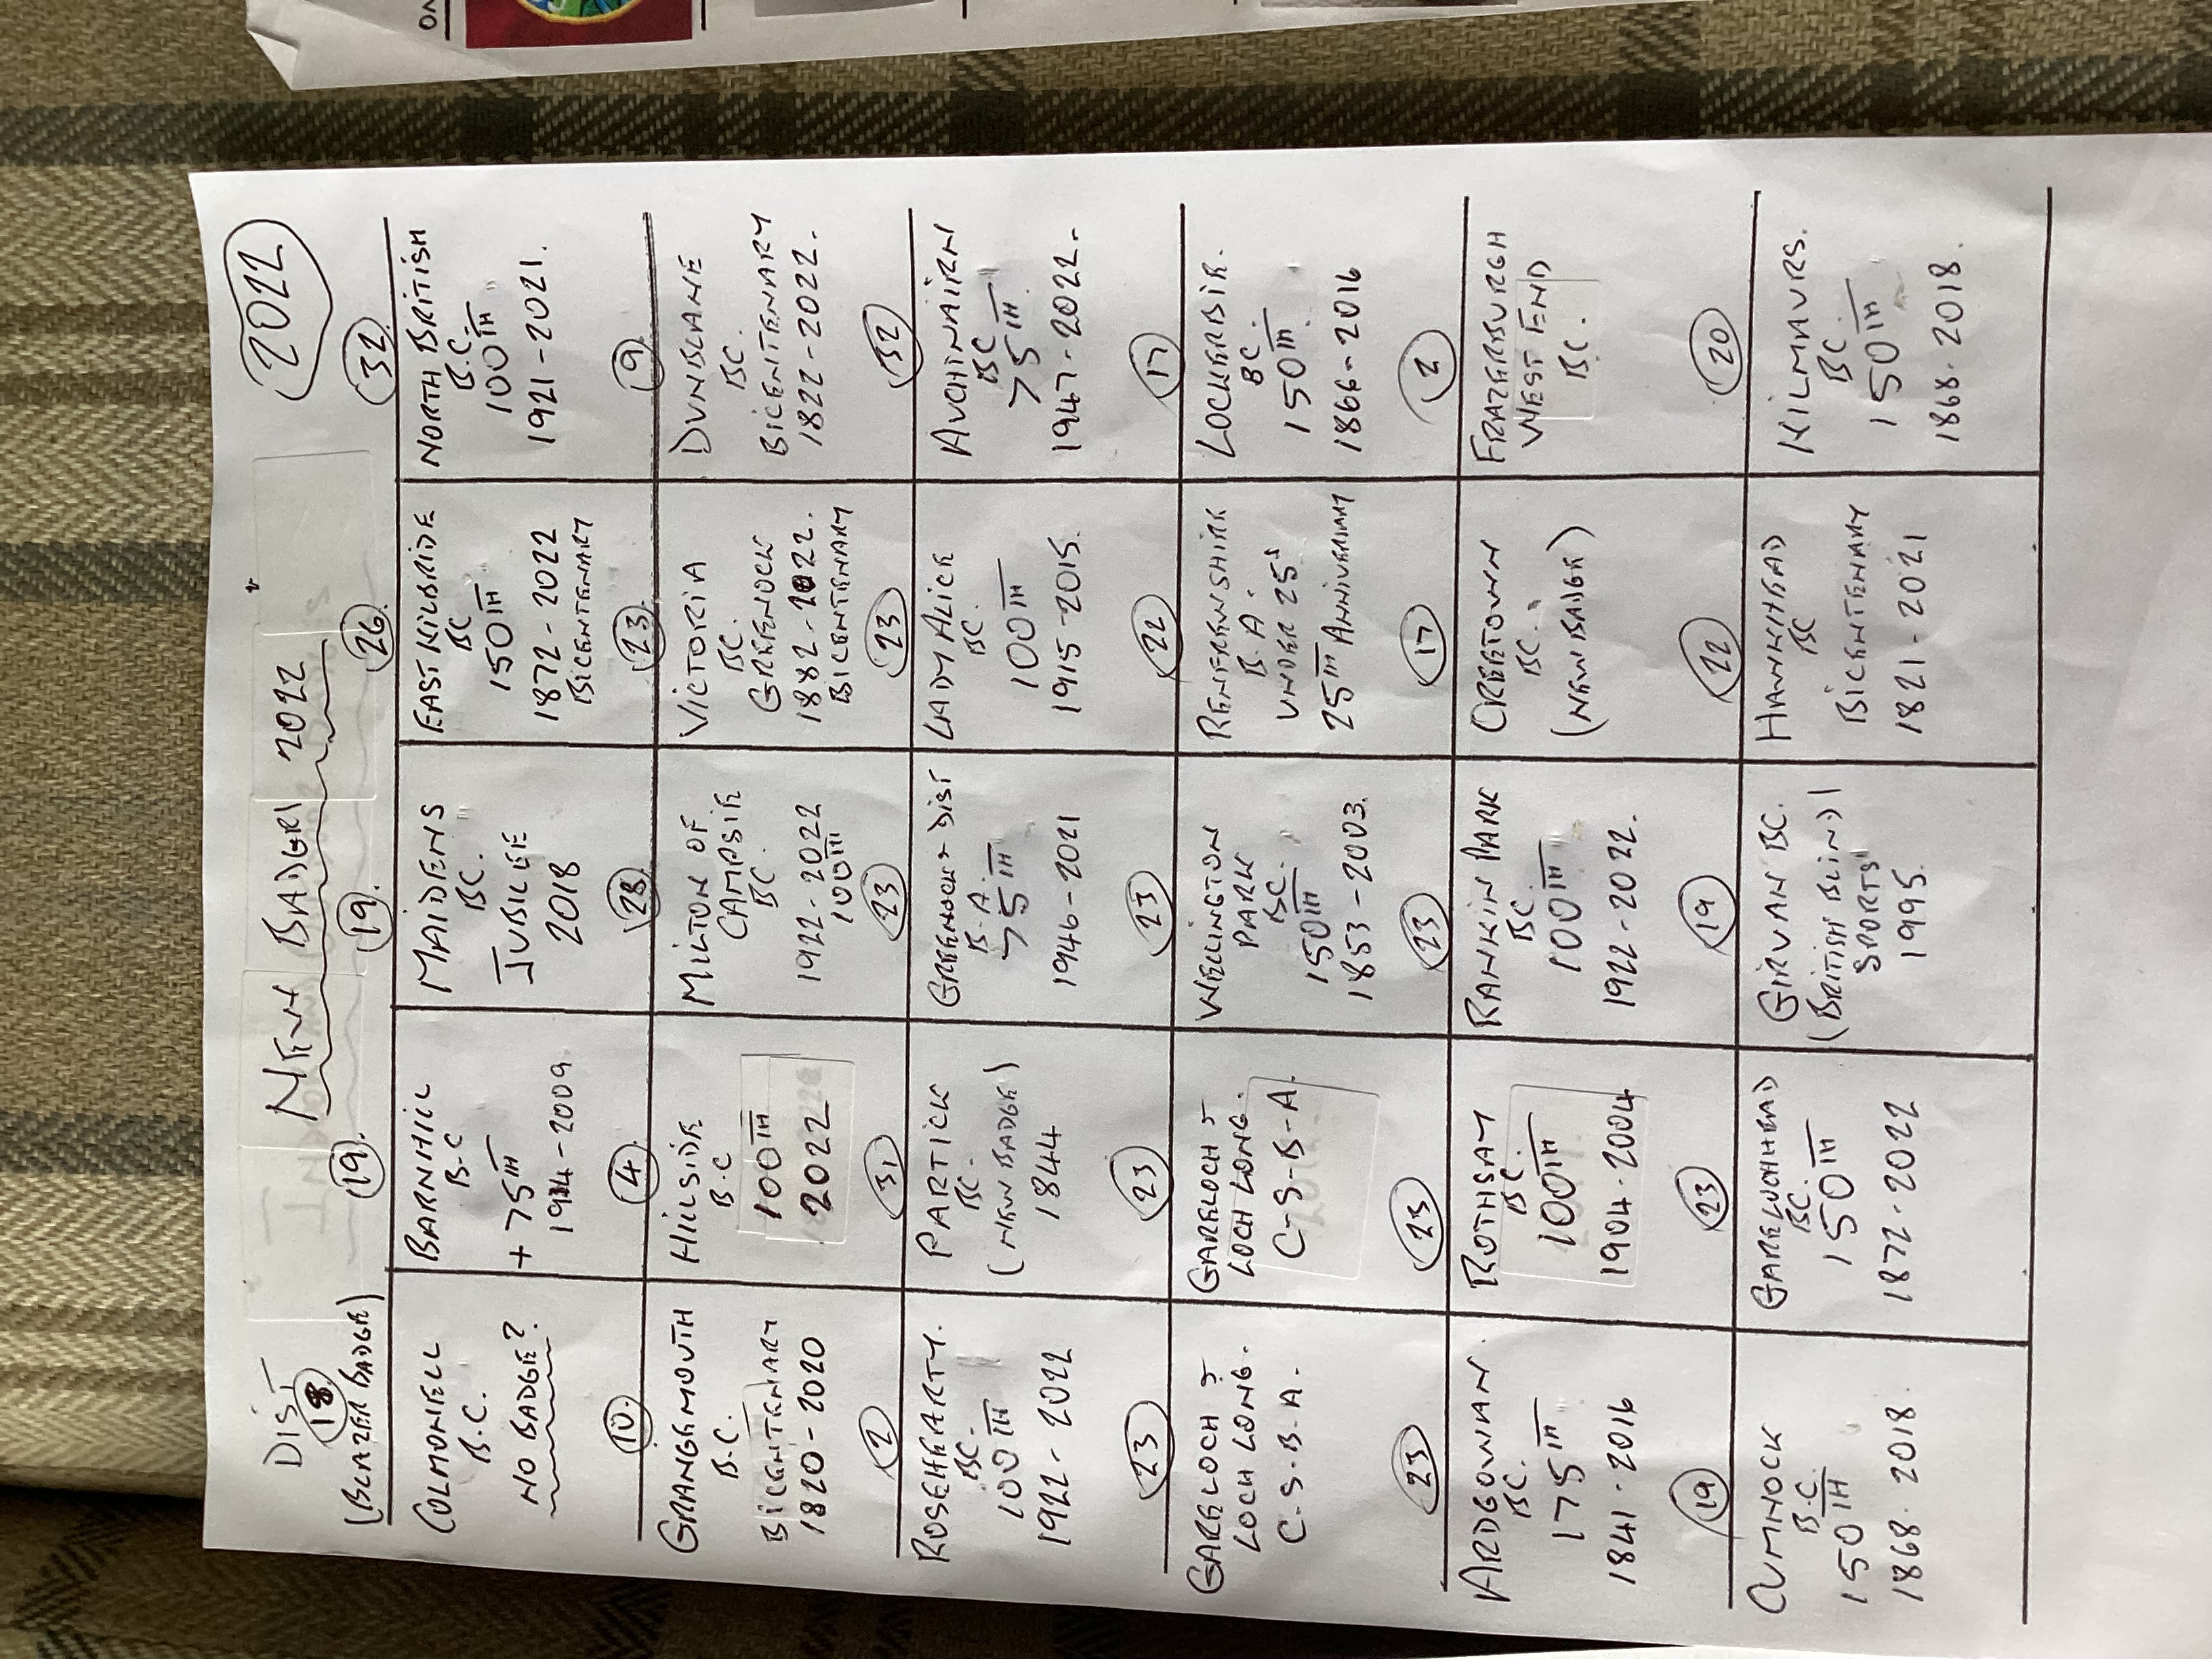 2022
NEW BADGES 2022
DIST
18
(BLAZER BADGE)
19.
19.
26.
32
COLMONELL
B.C.
NO BADGE?
BARNHILL
B-C
+ 75TH
1934-2009
MAIDENS
BC.
JUBILEE
2018
EAST KILBRIDE
BC
150TH
1872-2022
BICENTENARY
NORTH BRITISH
B.C.
100TH
1921-2021.
10.
4
28.
23.
9
GRANGEMOUTH
B.C.
BICENTENARY
1820-2020
HILLSIDE
B-C
100TH
2022
MILTON OF
CAMPSIE
BC
1922-2022
100TH
VICTORIA
BC.
GREENOCK
1882-2022.
BICENTENARY
DUNBLANE
BC.
BICENTENARY
1822-2022.
2
31
23
23
32
ROSEHEARTY.
BC.
100TH
1922-2022
PARTICK
BC.
(NEW BADGE)
1844
GREENOCK & DIST
B-A.
75TH
1946-2021
LADY ALICE
BC.
100TH
1915-2015.
AUCHINAIRN
BC
75TH
1947-2022.
23
23
23
22
17
GARELOCH &
LOCH LONG.
C.S.B.A.
GARELOCH &
LOCH LONG.
C-S-B-A.
WELLINGTON
PARK
BC.
150TH
1853-2003.
RENFREWSHIRE
B.A.
UNDER 25s
25TH ANNIVERARY
LOCKERBIE.
BC.
150TH
1866-2016
23
23
23
17
2
ARDGOWAN.
BC.
175TH
1841-2016
ROTHSAY
BC.
100TH
1904-2004
RANKIN PARK
BC
100TH
1922-2022.
CREETOWN
BC.
(NEW BADGE)
FRAZERBURGH
WEST END
BC.
19
23
19
22
20
CUMNOCK
B.C.
150TH
1868-2018.
GARELOCHHEAD
BC.
150TH
1872-2022
GIRVAN BC.
(BRITISH BLIND)
SPORTS
1995.
HAWKHEAD
BC
BICENTENARY
1821-2021
KILMAURS.
BC
150TH
1868-2018.